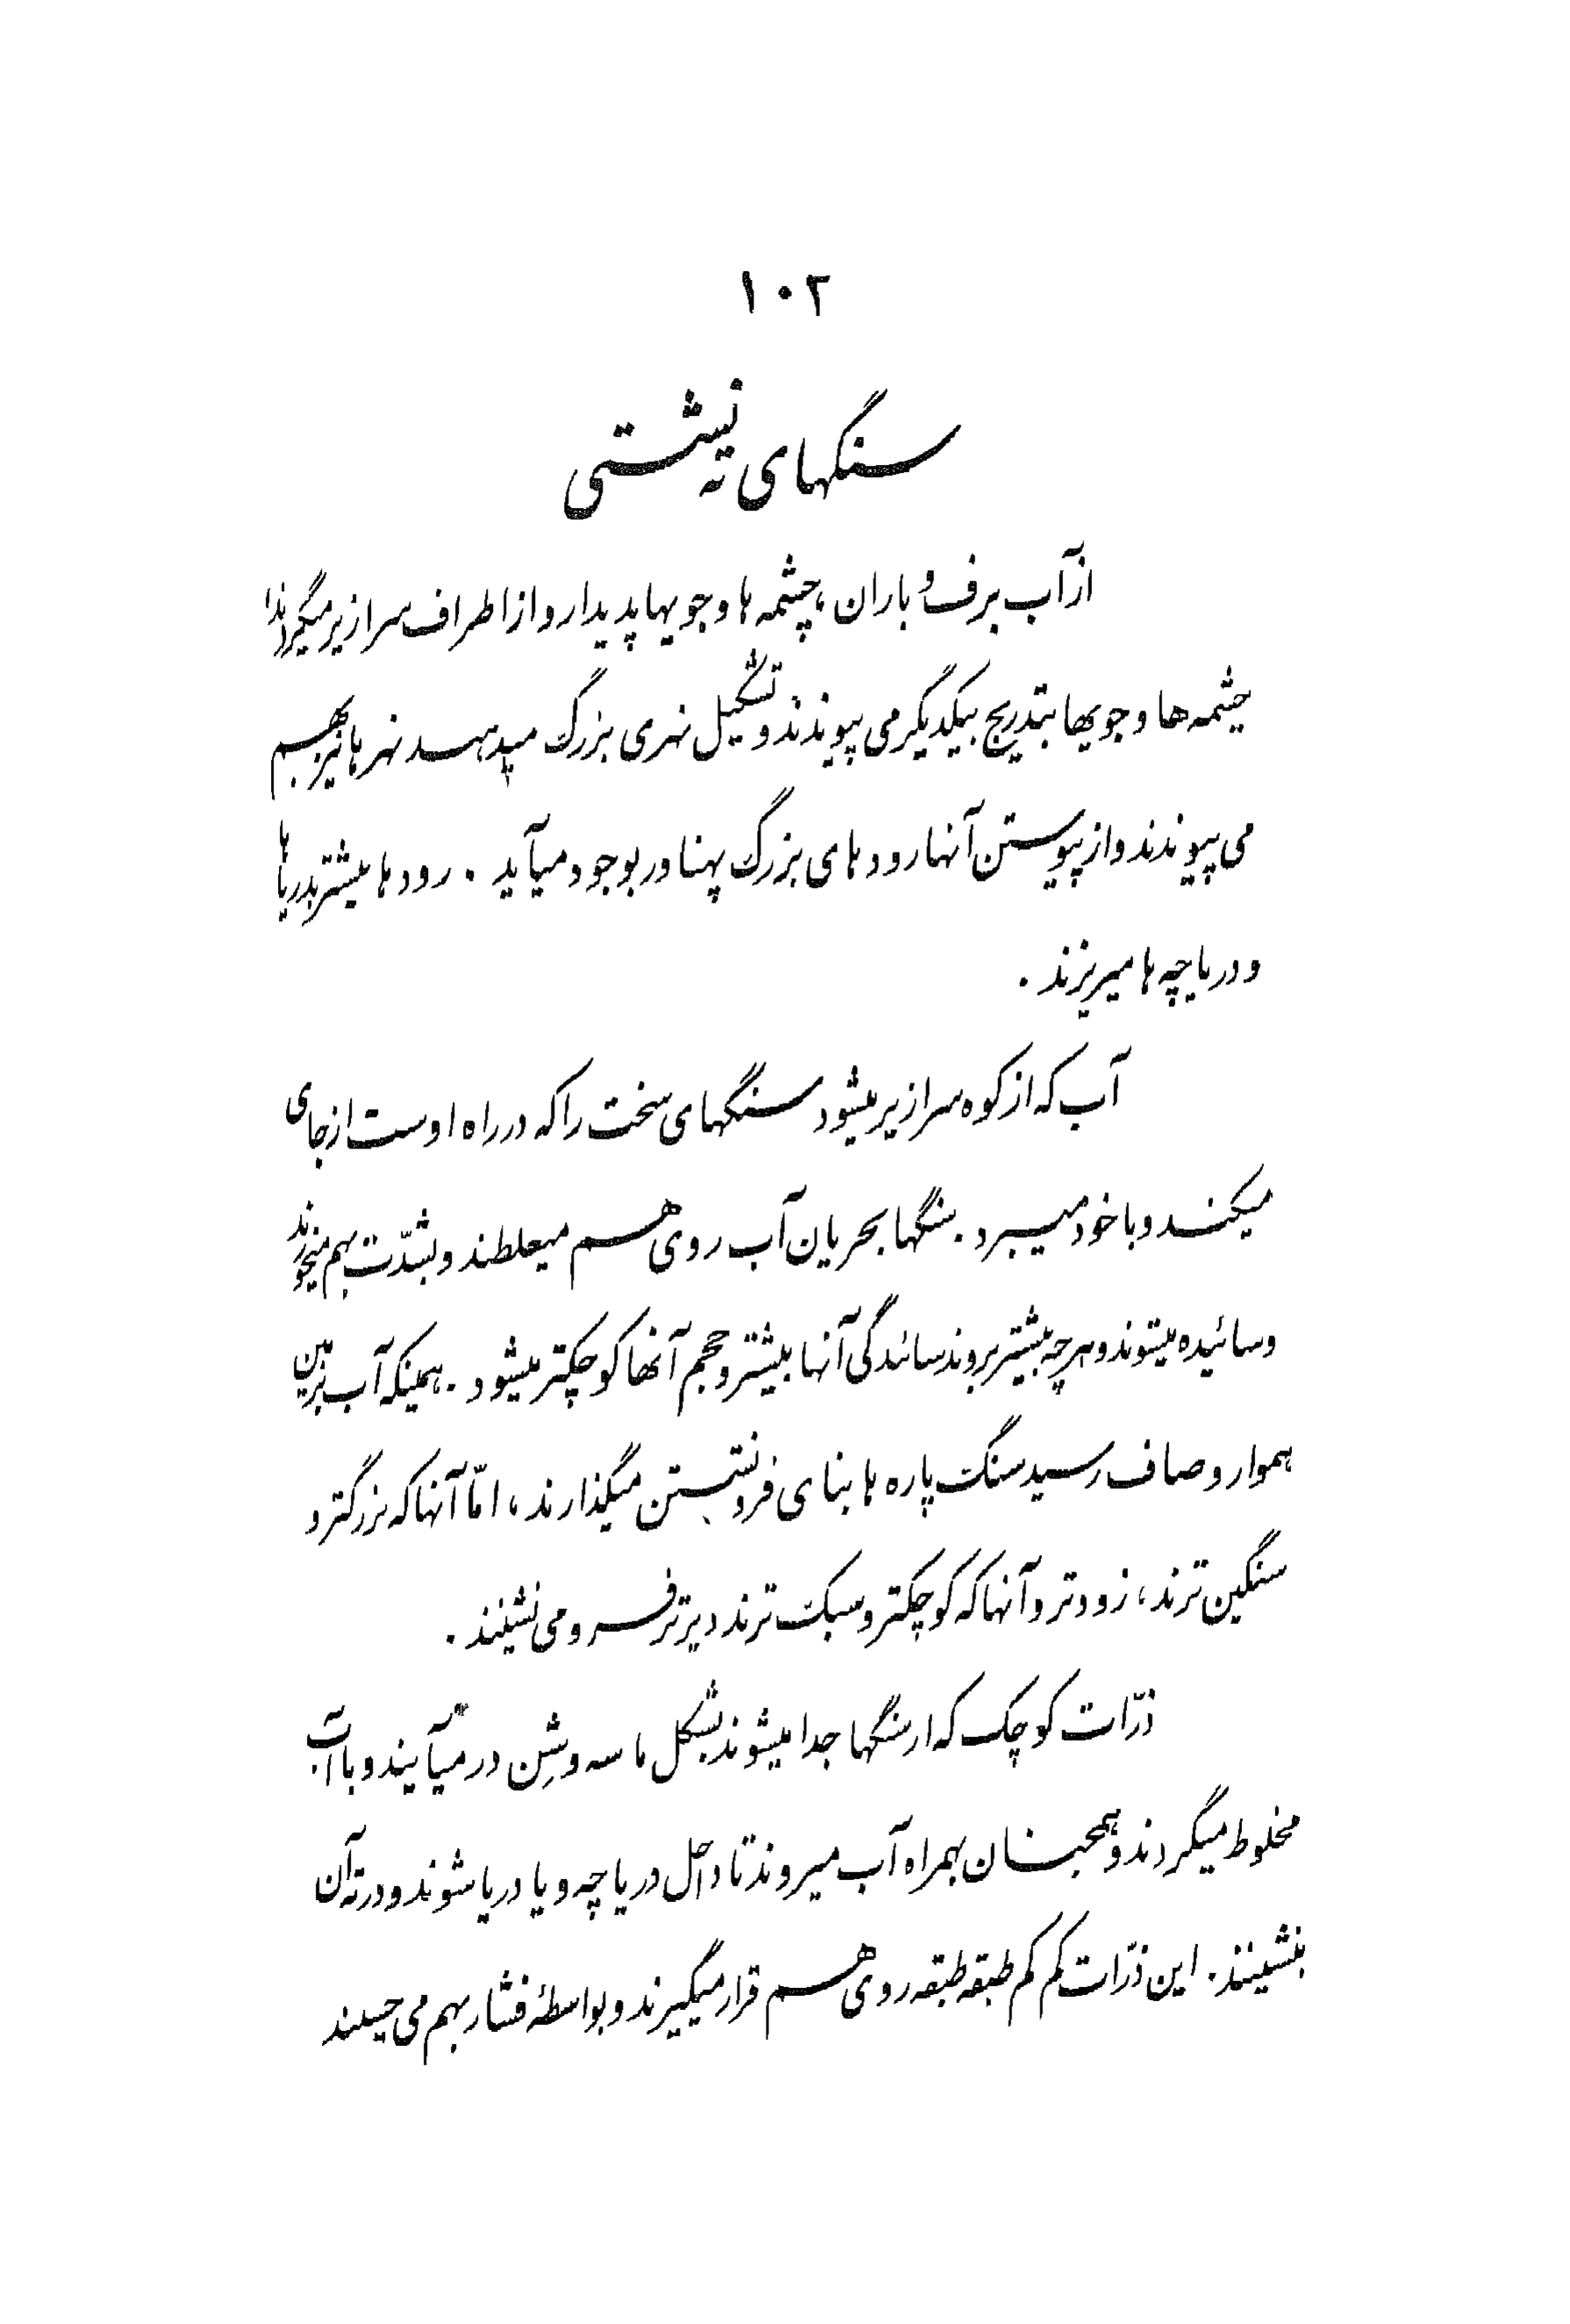 ۱۰۲
سنگهای ته نشستی
از آب برف و باران ، چشمه ها و جویها پدیدار و از اطراف سرازیر میگردند
چشمه ها و جویها بتدریج بیکدیگر می پیوندند و تشکیل نهری بزرگ میدهند نهرها نیز بهم
می پیوندند و از پیوستن آنها رودهای بزرگ پهناور بوجود میآید . رودها بیشتر بدریاها
و دریاچه ها میریزند .
آب که از کوه سرازیر میشود سنگهای سخت را که در راه اوست از جای
میکند و با خود میبرد . سنگها بجریان آب روی هم میغلطند و بشدّت بهم میخورند
و سائیده میشوند و هر چه بیشتر بروند سائیدگی آنها بیشتر و حجم آنها کوچکتر میشود . همینکه آب بزمین
هموار و صاف رسید سنگ پاره ها بنای فرو نشستن میگذارند ، امّا آنها که بزرگتر و
سنگین ترند ، زودتر و آنها که کوچکتر و سبک ترند دیرتر فرو می نشینند .
ذرّات کوچک که از سنگها جدا میشوند بشکل ماسه و شِن در میآیند و با آب
مخلوط میگردند و همچنان بهمراه آب میروند تا داخل دریاچه و یا دریا شوند و در ته آن
بنشینند . این ذرّات کم کم طبقه طبقه روی هم قرار میگیرند و بواسطهٔ فشار بهم می چسبند